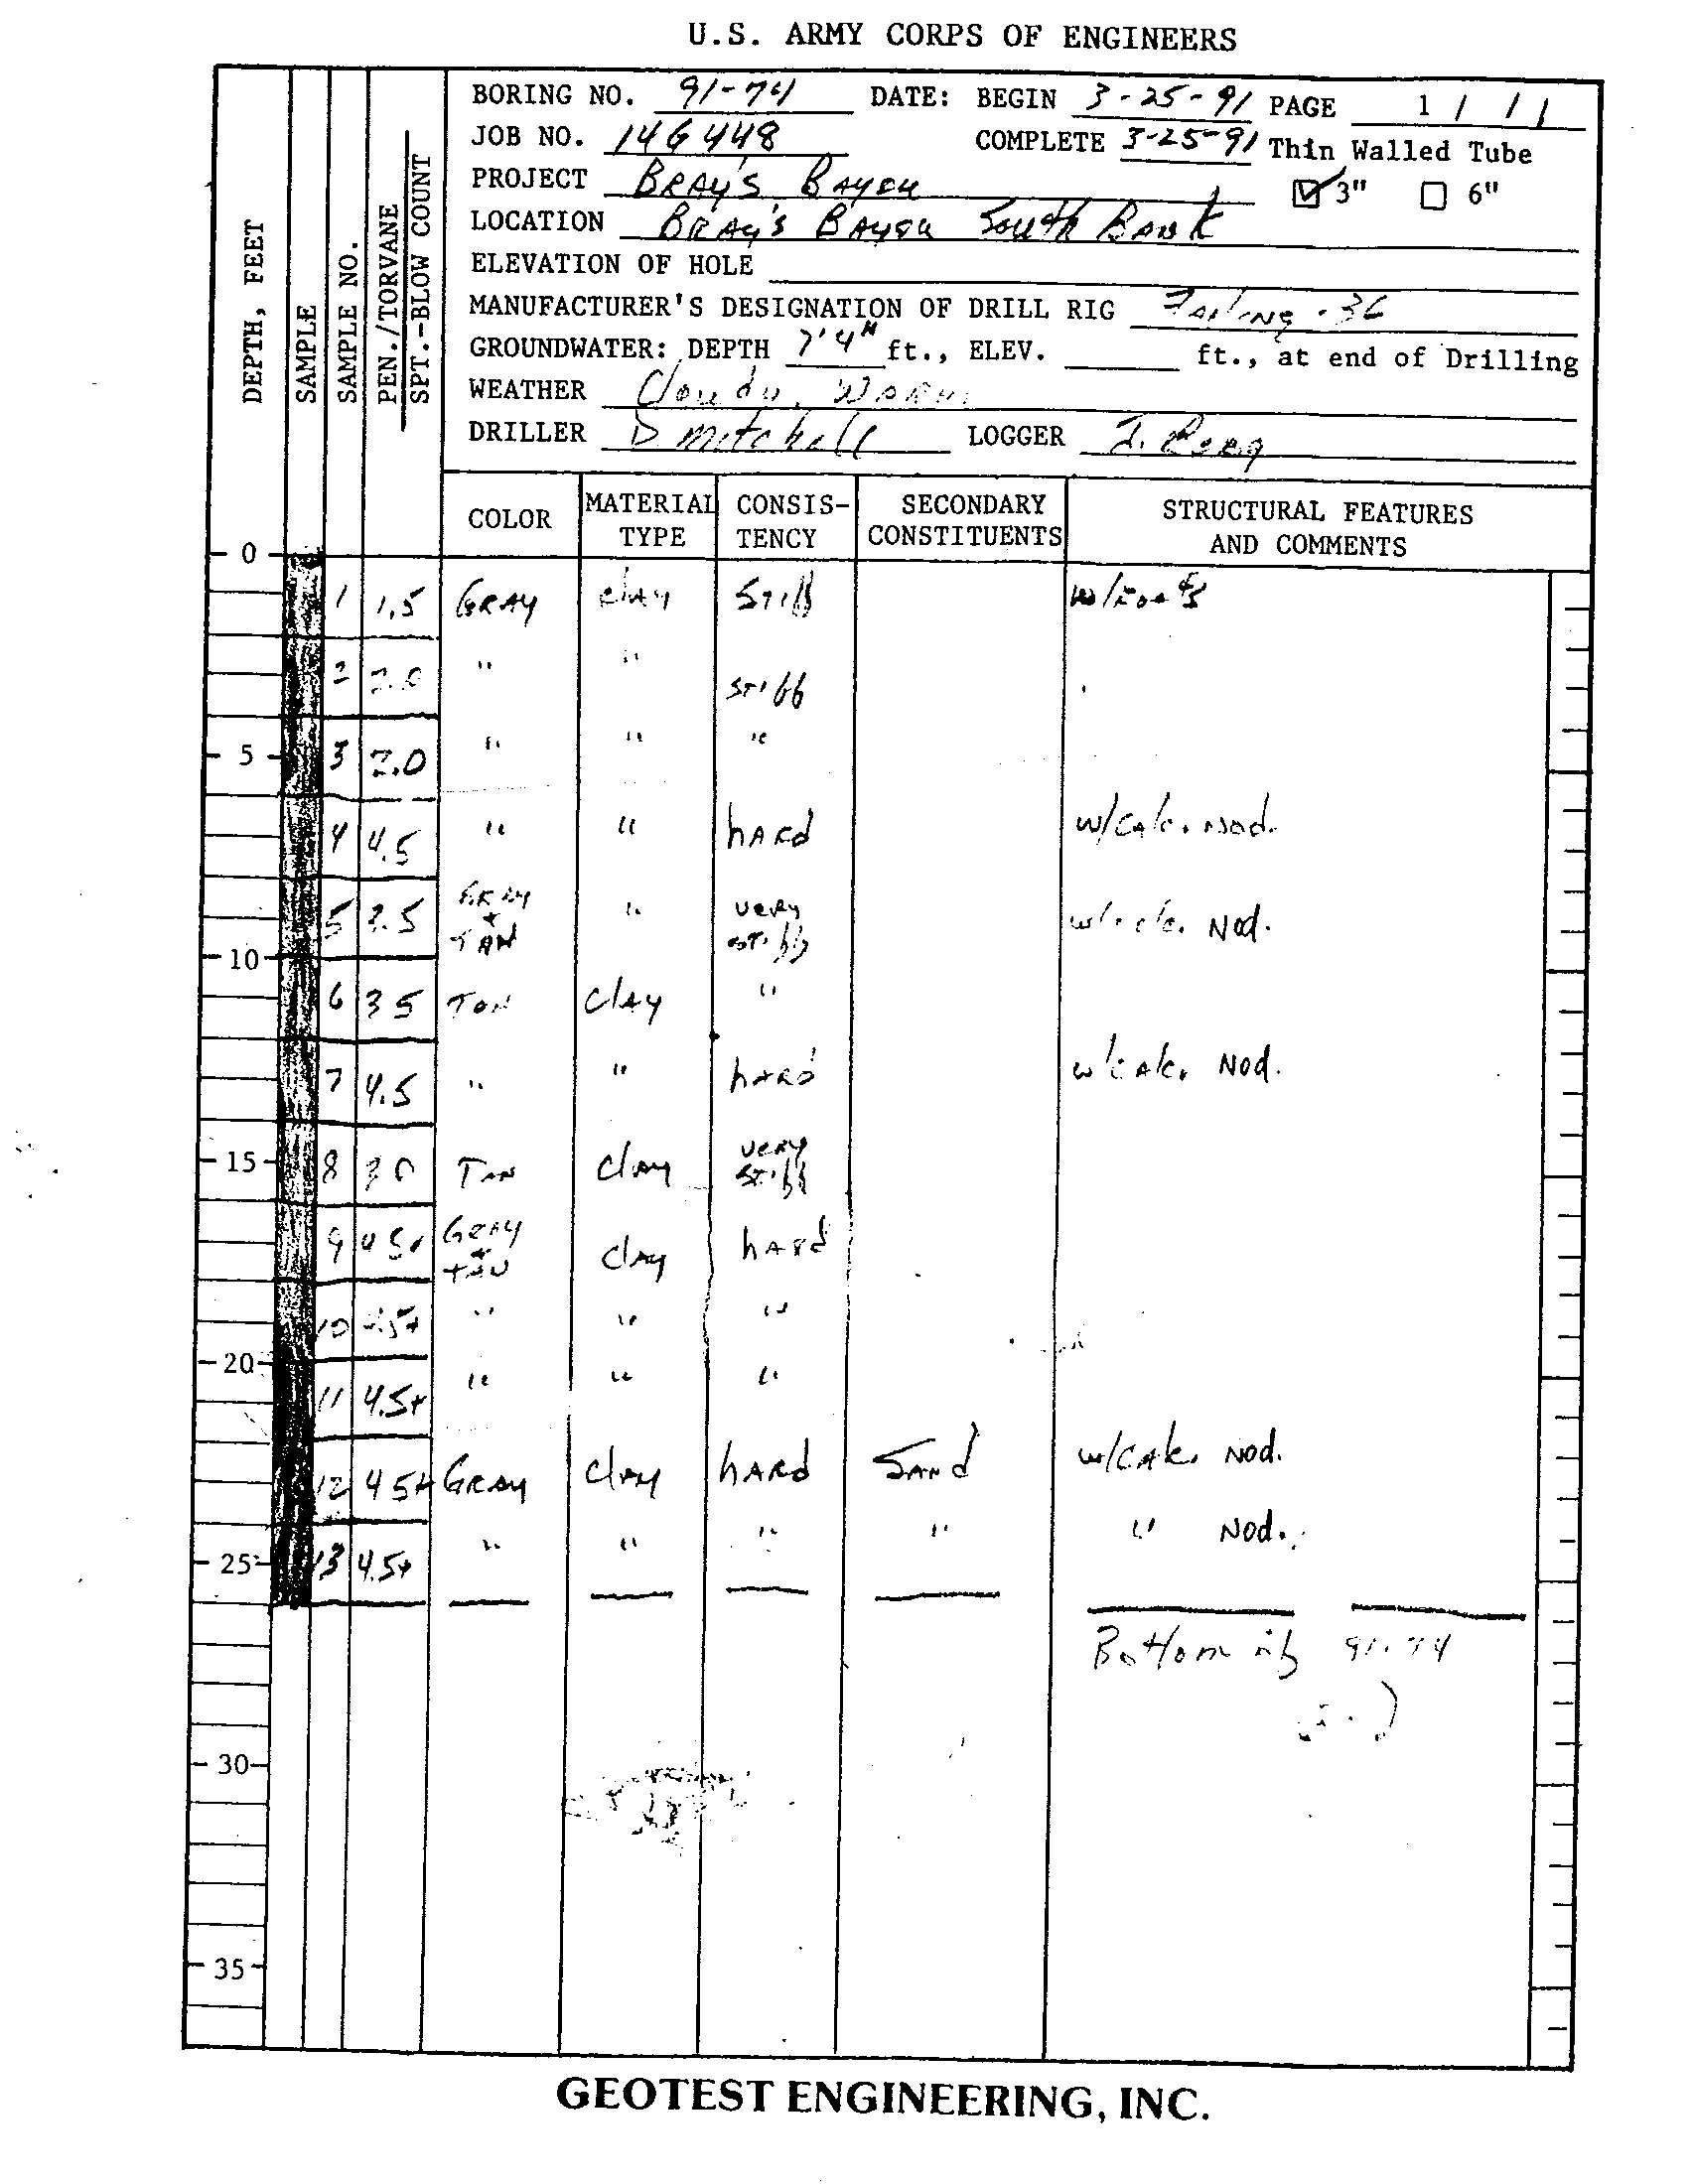 U.S. ARMY CORPS OF ENGINEERS
BORING NO. 91-74 DATE: BEGIN 3-25-91 PAGE 1 / 1
JOB NO. 14G448 COMPLETE 3-25-91 Thin Walled Tube
PROJECT BRAY'S BAYOU 3" 6"
LOCATION BRAY'S BAYOU South BANK
ELEVATION OF HOLE
MANUFACTURER'S DESIGNATION OF DRILL RIG Failing - 36
GROUNDWATER: DEPTH 7'4" ft., ELEV. ft., at end of Drilling
WEATHER Cloudy, WARM
DRILLER D Mitchell LOGGER
DEPTH, FEET SAMPLE SAMPLE NO. PEN./TORVANE SPT.-BLOW COUNT
COLOR MATERIAL TYPE CONSIS-TENCY SECONDARY CONSTITUENTS STRUCTURAL FEATURES AND COMMENTS
0
1 1.5 GRAY clay Stiff w/roots
2 2.0 " " stiff
5 3 2.0 " " "
4 4.5 " " hard w/calc. nod.
5 2.5 GRAY + TAN " very stiff w/calc. Nod.
10
6 3 5 TAN Clay "
7 4.5 " " hard w/calc. Nod.
15 8 3 0 TAN Clay very stiff
9 4 5+ GRAY + TAN clay hard
10 4.5+ " " "
20
11 4.5+ " " "
12 4 5+ GRAY clay hard Sand w/calc. Nod.
25 13 4.5+ " " " " " Nod.
Bottom of 91-74
30
35
GEOTEST ENGINEERING, INC.